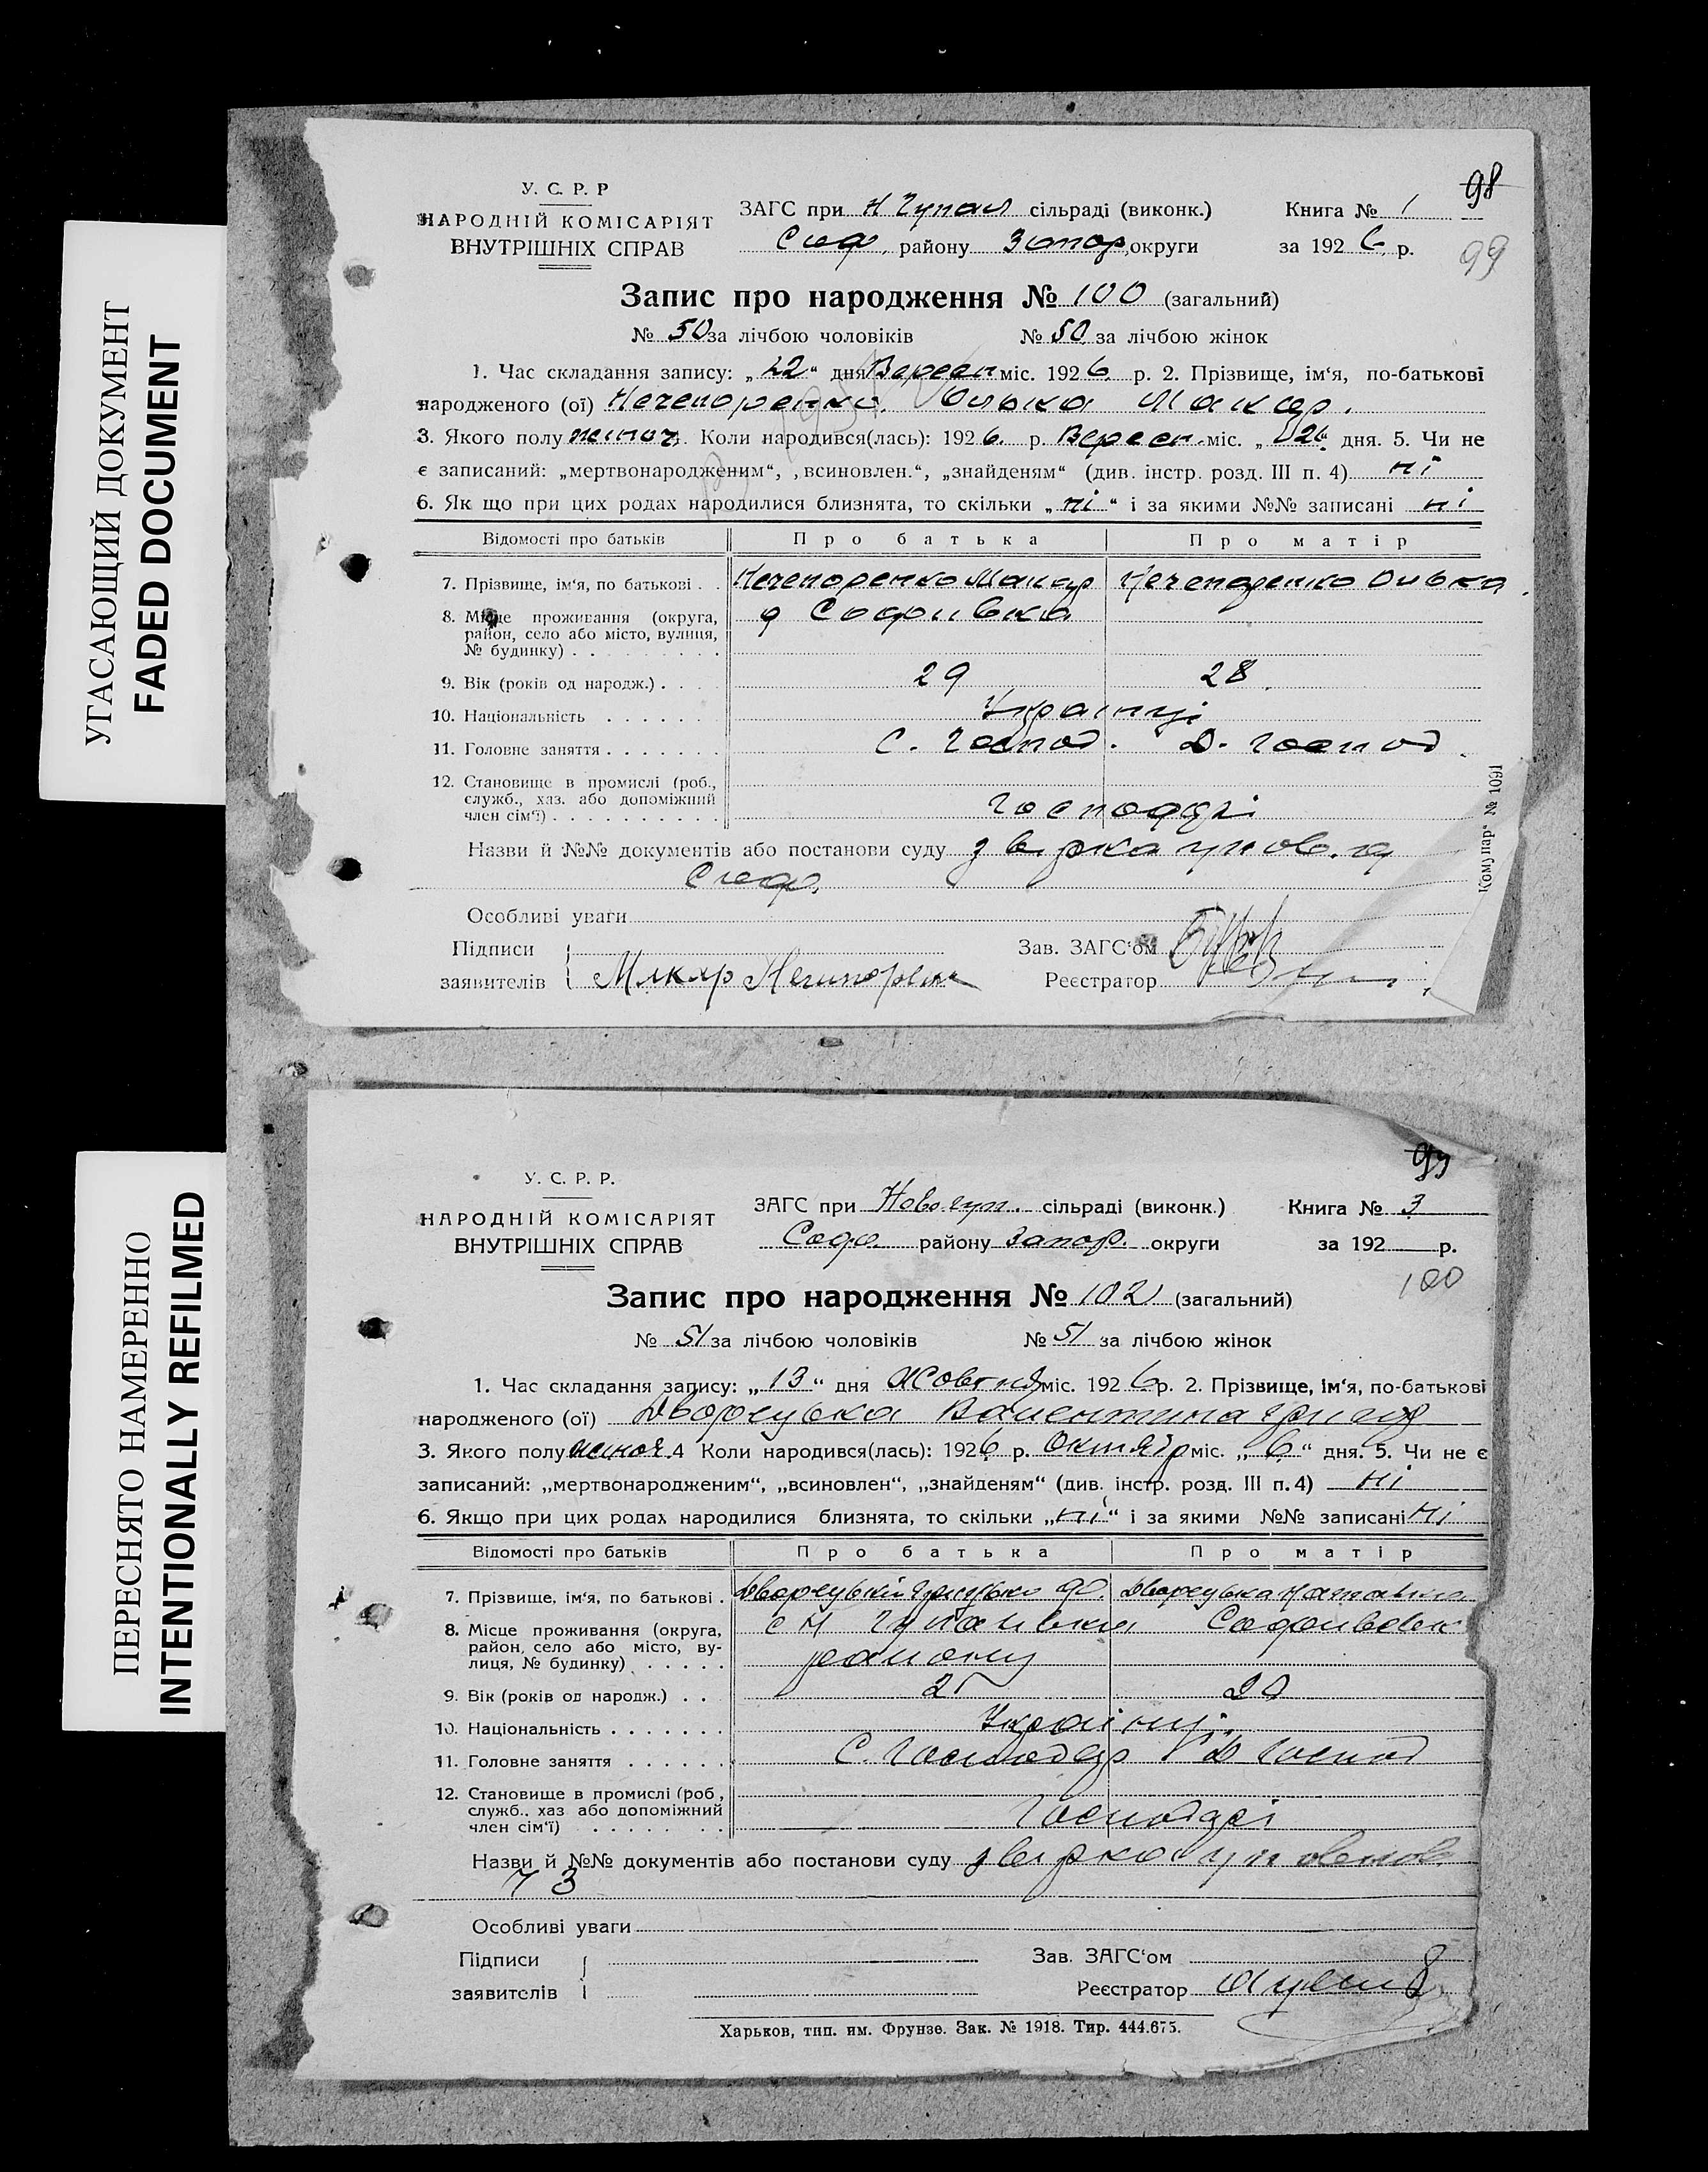 УГАСАЮЩИЙ ДОКУМЕНТ
FADED DOCUMENT
ПЕРЕСНЯТО НАМЕРЕННО
INTENTIONALLY REFILMED
98
99
У. С. Р. Р
НАРОДНІЙ КОМІСАРІЯТ
ВНУТРІШНІХ СПРАВ
ЗАГС при Н Гупал сільраді (виконк.) Книга № 1
Соф. району Запор. округи за 1926 р.
Запис про народження № 100 (загальний)
№ 50 за лічбою чоловіків № 50 за лічбою жінок
1. Час складання запису: „22“ дня Вересн міс. 1926 р. 2. Прізвище, ім‘я, по-батькові
народженого (ої) Нечепоренко Олька Макар.
3. Якого полу жіноч. Коли народився(лась): 1926. р. Вересн. міс. „ “ дня. 5. Чи не
є записаний: „мертвонародженим“, „всиновлен.“, „знайденям“ (див. інстр. розд. III п. 4) ні
6. Як що при цих родах народилися близнята, то скільки „ні“ і за якими №№ записані ні
Відомості про батьків Про батька Про матір
7. Прізвище, ім‘я, по батькові . . Нечепоренко Макар Нечепоренко Олька
8. Місце проживання (округа, Софиівка
район, село або місто, вулиця,
№ будинку) . . . . . . . . .
9. Вік (років од народж.) . . . . 29 28
10. Національність . . . . . . Українці
11. Головне заняття . . . . . . . С. Господ. Д. господ.
12. Становище в промислі (роб.,
служб., хаз. або допоміжний Господарі
член сім‘ї) . . . . . . . . . .
Назви й №№ документів або постанови суду звірка
Соф.
Особливі уваги
Підписи Зав. ЗАГС‘ом
заявителів Макар Нечипорен Реєстратор
Комунар“ № 1091
99
У. С. Р. Р.
НАРОДНІЙ КОМІСАРІЯТ
ВНУТРІШНІХ СПРАВ
ЗАГС приНово.гуп. сільраді (виконк.) Книга № 3
Соф. району Запор. округи за 192 р.
100
Запис про народження № 102 (загальний)
№ 51 за лічбою чоловіків № 51 за лічбою жінок
1. Час складання запису: „13“ дня Жовтня міс. 1926 р. 2. Прізвище, ім‘я, по-батькові
народженого (ої) Валентина Гриць
3. Якого полу жіноч. 4 Коли народився(лась): 1926 р. Октябр міс. „6“ дня. 5. Чи не є
записаний: „мертвонародженим“, „всиновлен“, „знайденям“ (див. інстр. розд. III п. 4) ні
6. Якщо при цих родах народилися близнята, то скільки „ні“ і за якими №№ записані ні
Відомості про батьків Про батька Про матір
7. Прізвище, ім‘я, по батькові . Грицько Наталка
8. Місце проживання (округа, с Н Гупалівка Софиевск
район, село або місто, ву- району
лиця, № будинку) . . . . . .
9. Вік (років од народж.) . . 20
10. Національність . . . . . . . Українці
11. Головне заняття . . . . . . С. Господар Д Господ
12. Становище в промислі (роб,
служб.. хаз або допоміжний Господарі
член сім‘ї) . . . . . . . .
Назви й №№ документів або постанови суду звірка
73
Особливі уваги
Підписи Зав. ЗАГС‘ом
заявителів Реєстратор
Харьков, тип. им. Фрунзе. Зак. № 1918. Тир. 444.675.